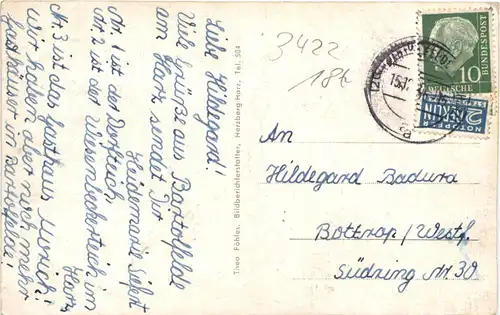 Liebe Hildegard!
Viele Grüße aus Bartolfelde
am Harz sendet Dir
Heidemarie Seifert
Nr. 1 ist der Dorfteich
Nr. 2 ist der Wiesenbekerteich im
Harz,
Nr. 3 ist das Gasthaus
wir haben aber noch mehr
Gasthäuser in Bartolfelde!
Theo Föhles, Bildberichterstatter, Herzberg-Harz, Tel. 504
3422
186
10
DEUTSCHE
BUNDESPOST
NOTOPFER
2 BERLIN
An
Hildegard Badura
Bottrop/Westf.
Südring Nr. 30